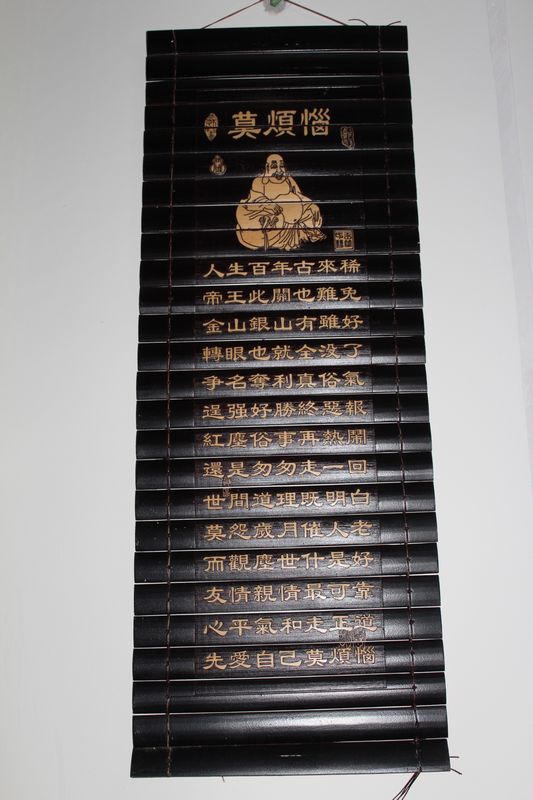 莫煩惱
人生百年古來稀
帝王此關也難免
金山銀山有雖好
轉眼也就全没了
爭名奪利真俗氣
逞强好勝終惡報
紅塵俗事再熱鬧
還是匆匆走一回
世間道理既明白
莫怨歲月催人老
而觀塵世什是好
友情親情最可靠
心平氣和走正道
先愛自己莫煩惱